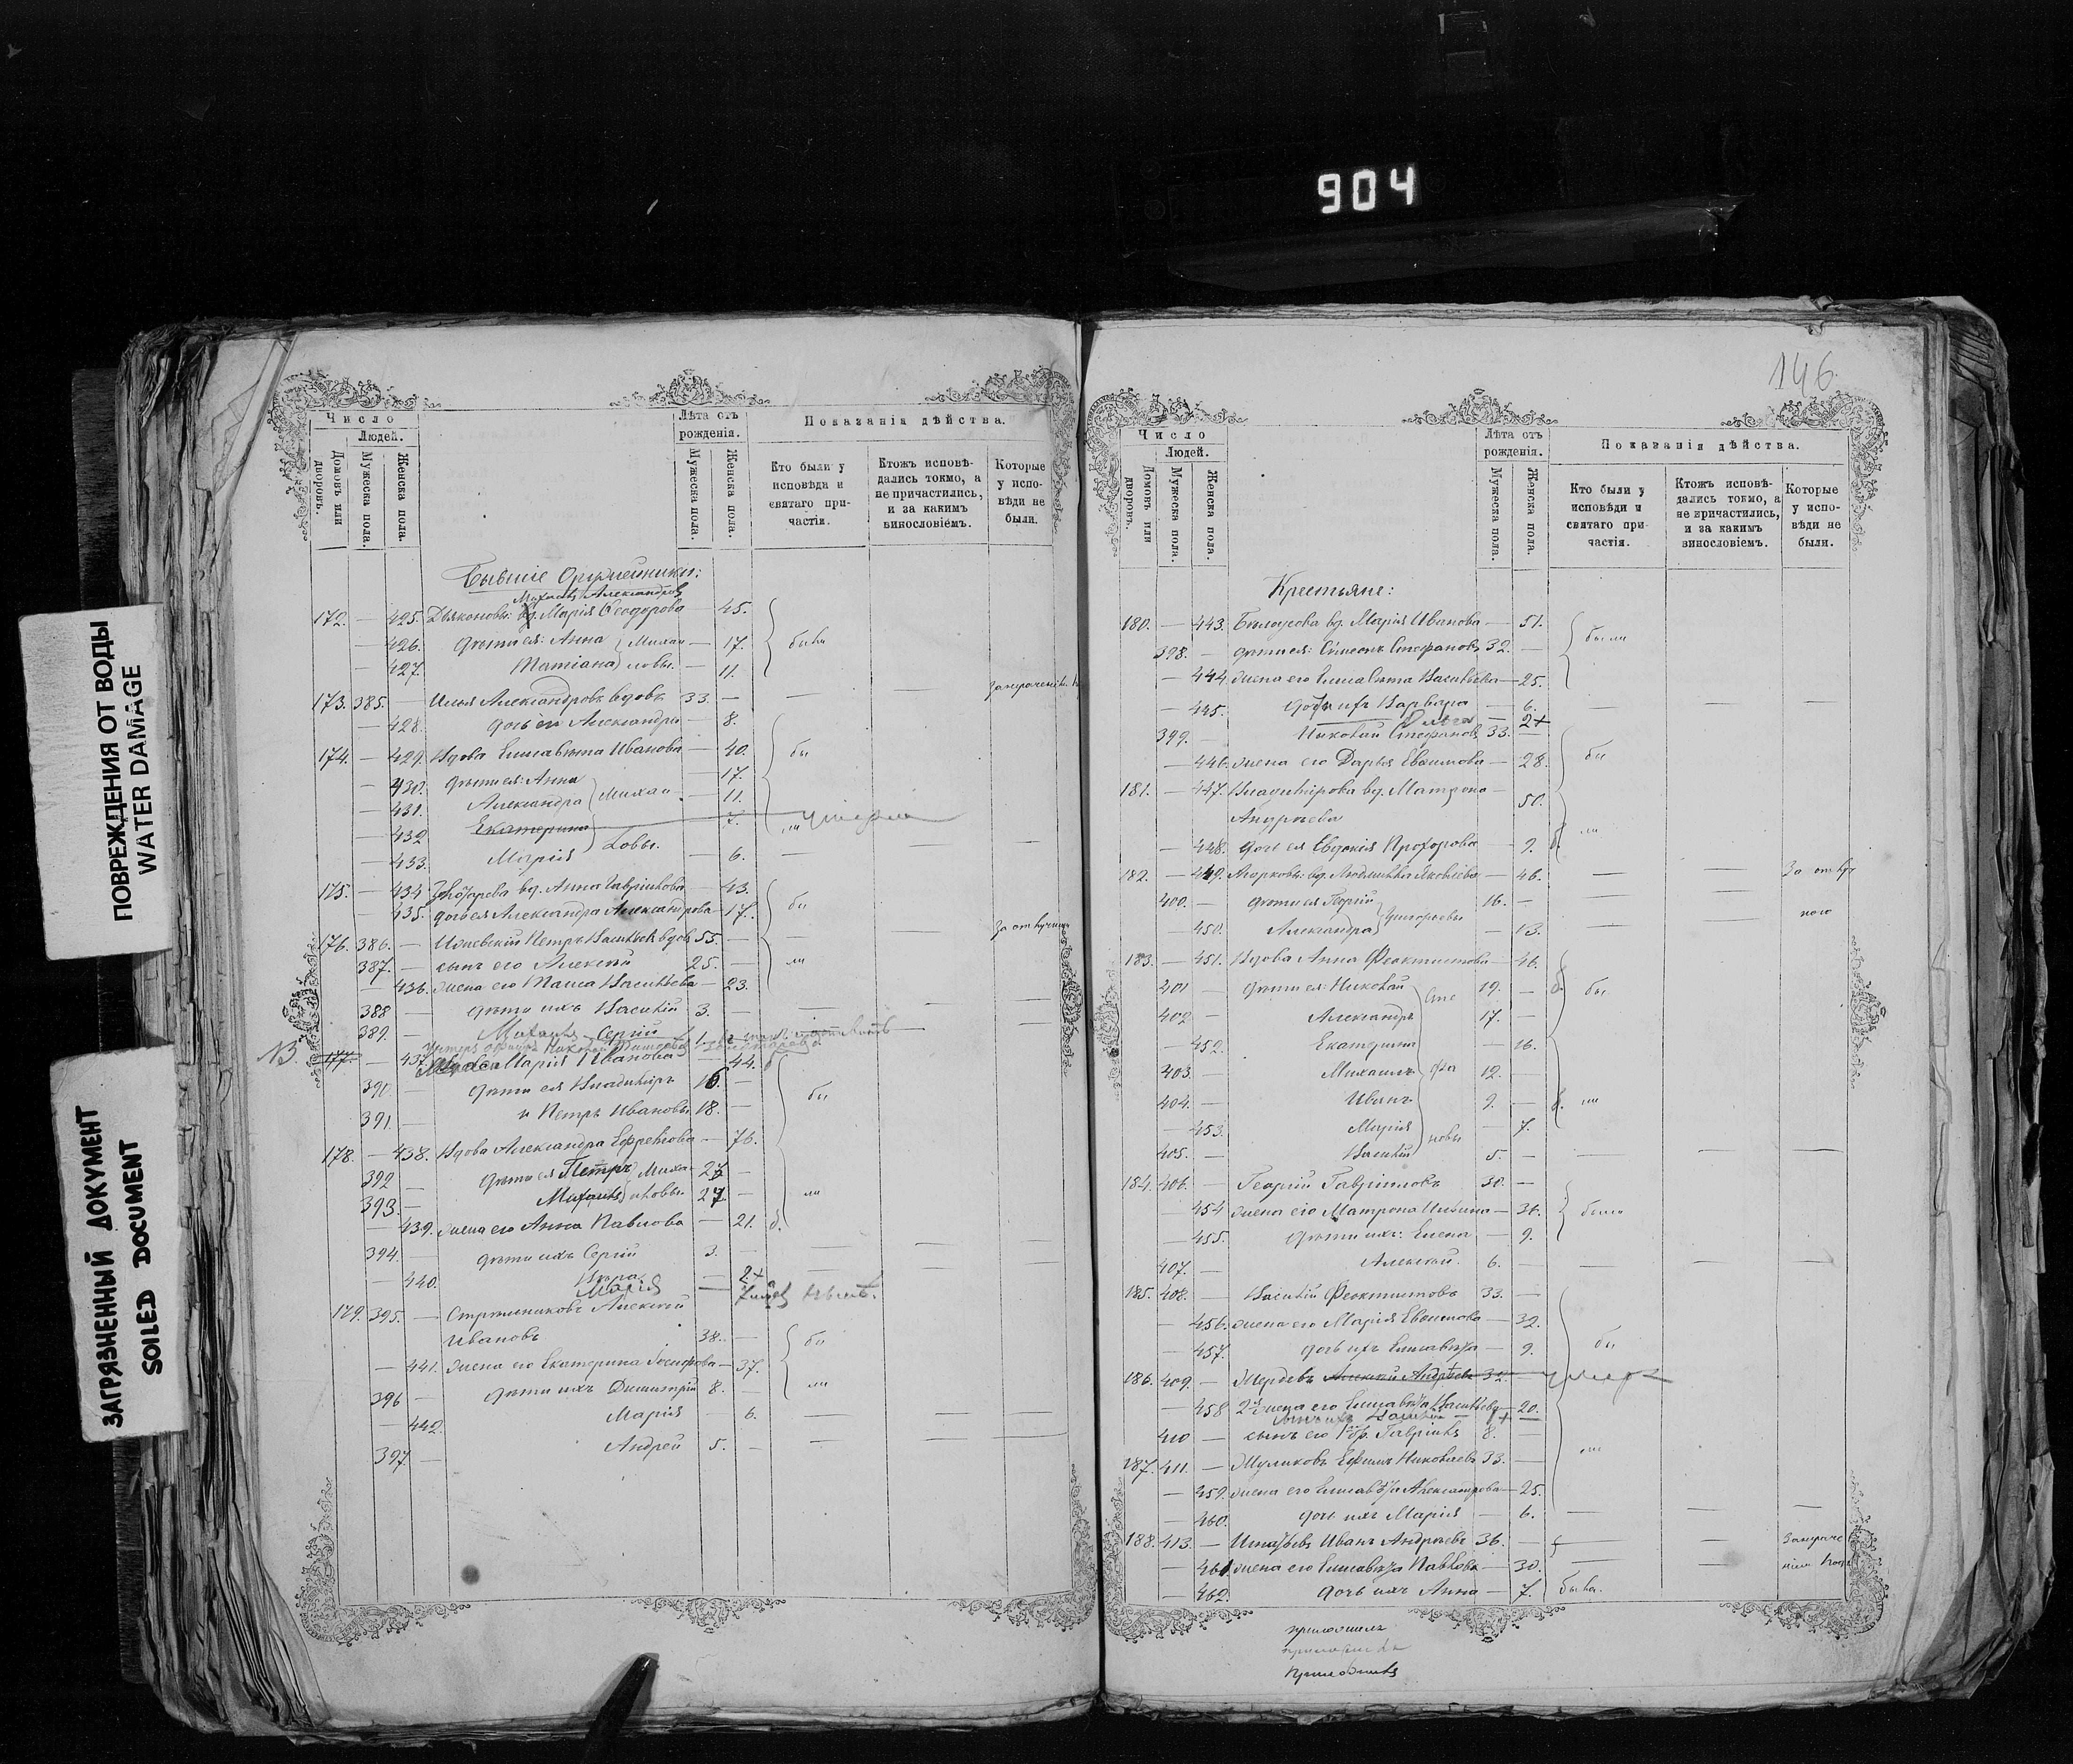 904
146.
ПОВРЕЖДЕНИЯ ОТ ВОДЫ
WATER DAMAGE
ЗАГРЯЗНЕННЫЙ ДОКУМЕНТ
SOILED DOCUMENT
Число
Людей.
Домовъ или дворовъ.
Мужеска пола.
Женска пола.
Лѣта отъ рожденія.
Мужеска пола.
Женска пола.
Показанія дѣйства.
Кто были у исповѣди и святаго причастія.
Ктожъ исповѣдались токмо, а не причастились, и за какимъ винословіемъ.
Которые у исповѣди не были.
Бывшіе Оружейники:
Михаилъ Александровъ
172. — 425. Дьяконовы: вд. Марія Ѳеодорова — 45.
— 426. дѣти ея: Анна Михаи — 17. были
— 427. Татіана ловы. — 11.
173. 385. — Илья Александровъ вдовъ 33. —
— 428. дочь его Александра — 8.
174. — 429. Вдова Елисавета Иванова — 40. бы
— 430. дѣти ея: Анна — 17.
— 431. Александра Михаи — 11.
— 432 Екатерина 7. ли умерла
— 433. Марія ловы. — 6.
175. — 434 вд. Анна Гавриилова — 43. бы
— 435. дочь ея Александра Александрова — 17.
176. 386. — Петръ Васильевъ вдовъ 55. — За отлучкою
387. — сынъ его Алексѣй 25. — ли
— 436. жена его Таиса Васильева — 23.
388 — дѣти ихъ Василій 3. —
389. — Сергій 1.
177. — 437. Марія Иванова 44.
390. дѣти ея Владиміръ 16. —
391. — и Петръ Ивановы 18. — бы
178. — 438. Вдова Александра Ефремова — 76.
392 — дѣти ея Петръ Миха 27 —
393. — Михаилъ иловы 27 — ли
— 439. жена его Анна Павлова — 21.
394. — дѣти ихъ Сергій 3. —
— 440. Вѣра — 2+
Марія —
179. 395. — Стрѣльниковъ Алексѣй
Ивановъ 38. — бы
— 441. жена его Екатерина — 37.
396 — дѣти ихъ Димитрій 8. — ли
— 442. Марія — 6.
397 — Андрей 5. —
Число
Людей.
Домовъ или дворовъ.
Мужеска пола.
Женска пола.
Лѣта отъ рожденія.
Мужеска пола.
Женска пола.
Показанія дѣйства.
Кто были у исповѣди и святаго причастія.
Ктожъ исповѣдались токмо, а не причастились, и за какимъ винословіемъ.
Которые у исповѣди не были.
Крестьяне:
180. — 443. Бѣлоусова вд. Марія Иванова — 51.
398. — дѣти ея: Сѵмеонъ Стефановъ 32. — были
— 444. жена его Елисавета Васильева — 25.
— 445. дочь ихъ Варвара — 6.
Ольга — 2+
399. — Николай Стефановъ 33. —
— 446. жена его Дарья Евѳимова — 28. бы
181. — 447. Владимірова вд. Матрона —
Андреева 50.
— 448. дочь ея Евдокія Прохорова — 9. ли
182. — 449. Марковы: вд. Людмилла Яковлева — 46. За отлуч
400. — дѣти ея Георгій 16. —
— 450. Александра Григорьевы — 13. кою
183. — 451. Вдова Анна Ѳеоктистова — 46.
401 — дѣти ея: Николай 19. — бы
402 — Александръ Сте 17. —
— 452. Екатерина — 16.
403. — Михаилъ фа 12. —
404. — Иванъ 9. — ли
— 453. Марія — 7.
405. — Василій новы 5. —
184. 406. — Георгій Гавриловъ 30. —
— 454 жена его Матрона Ильина — 36. были
— 455. дѣти ихъ: Елена — 9.
407. — Алексѣй. 6. —
185. 408. — Василій Ѳеоктистовъ 33. —
— 456. жена его Марія Евѳимова — 32.
— 457. дочь ихъ Елисавета — 9. бы
186. 409. — Жердевъ Алексѣй Андреевъ 32. умеръ
— 458 2я жена его Елисавета Васильева — 20.
сынъ ихъ Василій — 1+
410 — сынъ его 1го бр. Гавріилъ 8. —
187. 411. — Жуликовъ Ефимъ Николаевъ 33. — ли
— 459. жена его Елисавета Александрова — 25.
— 460. дочь ихъ Марія — 6.
188. 413. — Иванъ Андреевъ 36. —
— 461 жена его Елисавета Павлова — 30.
— 462. дочь ихъ Анна — 7. была.